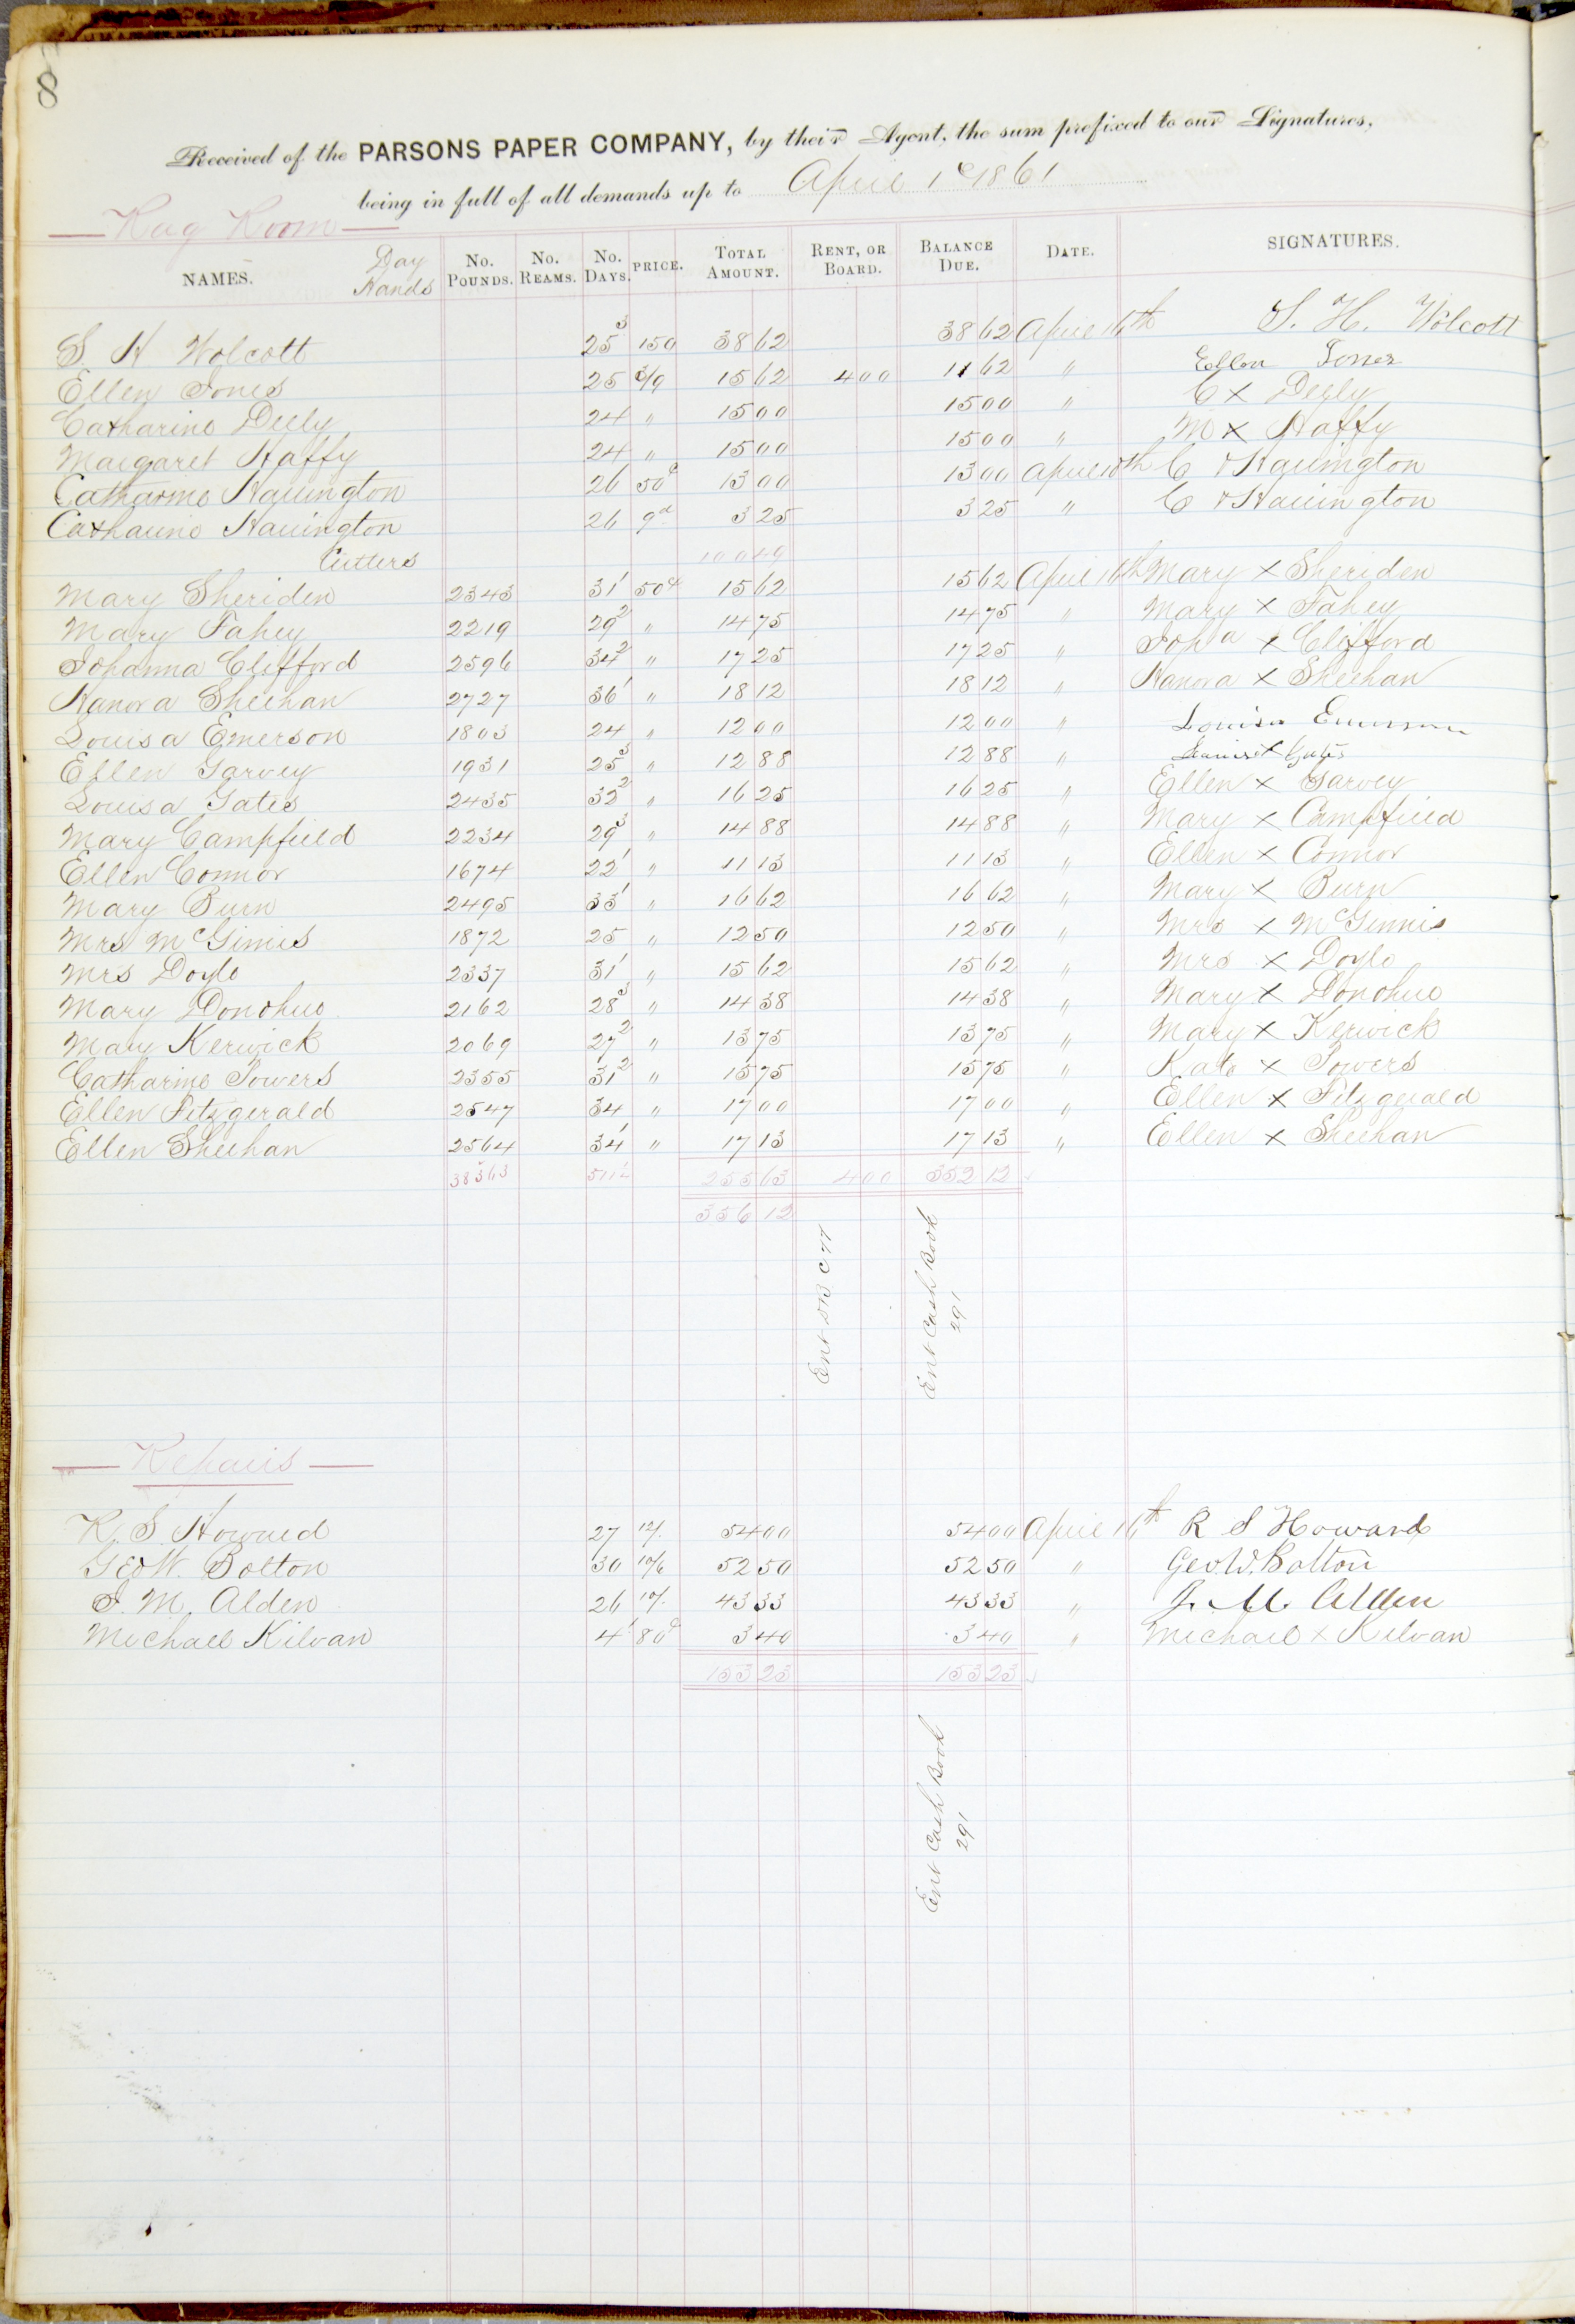 8
Received of the PARSONS PAPER COMPANY, by their Agent, the sum prefixed to our Signatures,
being in full of all demands up to April 1st 1861
Rag Room
NAMES. Day Hands No. POUNDS. No. REAMS. No. DAYS. PRICE. TOTAL AMOUNT. RENT, OR BOARD. BALANCE DUE. DATE. SIGNATURES.
S H Wolcott 25 3 150 38 62 38 62 April 16th S. H. Wolcott
Ellen Jones 25 3/9 15 62 4 00 11 62 " Ellen Jones
Catharine Deely 24 " 15 00 15 00 " C X Deely
Margaret Haffy 24 " 15 00 15 00 " M X Haffy
Catharine Harrington 26 50c 13 00 13 00 April 10th C X Harrington
Catharine Harrington 26 9d 3 25 3 25 " C X Harrington
Cutters 100 49
Mary Sheriden 2343 31 1 50c 15 62 15 62 April 16th Mary X Sheriden
Mary Fahey 2219 29 2 " 14 75 14 75 " Mary X Fahey
Johanna Clifford 2596 34 2 " 17 25 17 25 " Joha X Clifford
Hanora Sheehan 2727 36 1 " 18 12 18 12 " Hanora X Sheehan
Louisa Emerson 1803 24 " 12 00 12 00 " Louisa Emerson
Ellen Garvey 1931 25 3 " 12 88 12 88 " Louise X Gates
Louisa Gates 2435 32 2 " 16 25 16 25 " Ellen X Garvey
Mary Campfield 2234 29 3 " 14 88 14 88 " Mary X Campfield
Ellen Connor 1674 22 1 " 11 13 11 13 " Ellen X Connor
Mary Burn 2495 33 1 " 16 62 16 62 " Mary X Burn
Mrs McGinnis 1872 25 " 12 50 12 50 " Mrs X McGinnis
Mrs Doyle 2337 31 1 " 15 62 15 62 " Mrs X Doyle
Mary Donohue 2162 28 3 " 14 38 14 38 " Mary X Donohue
Mary Kerwick 2069 27 2 " 13 75 13 75 " Mary X Kerwick
Catharine Powers 2355 31 2 " 15 75 15 75 " Kate X Powers
Ellen Fitzgerald 2547 34 " 17 00 17 00 " Ellen X Fitzgerald
Ellen Sheehan 2564 34 1 " 17 13 17 13 " Ellen X Sheehan
38363 511 255 63 4 00 352 12
356 12
Ent Cash Book 291
Repairs
R. S. Howard 27 12/. 54 00 54 00 April 16th R S Howard
Geo W. Bolton 30 10/6 52 50 52 50 " Geo. W. Bolton
J. M. Alden 26 10/. 43 33 43 33 " J. M. Alden
Michael Kilvan 4 1 80c 3 40 3 40 " Michael X Kilvan
153 23 153 23
Ent Cash Book 291